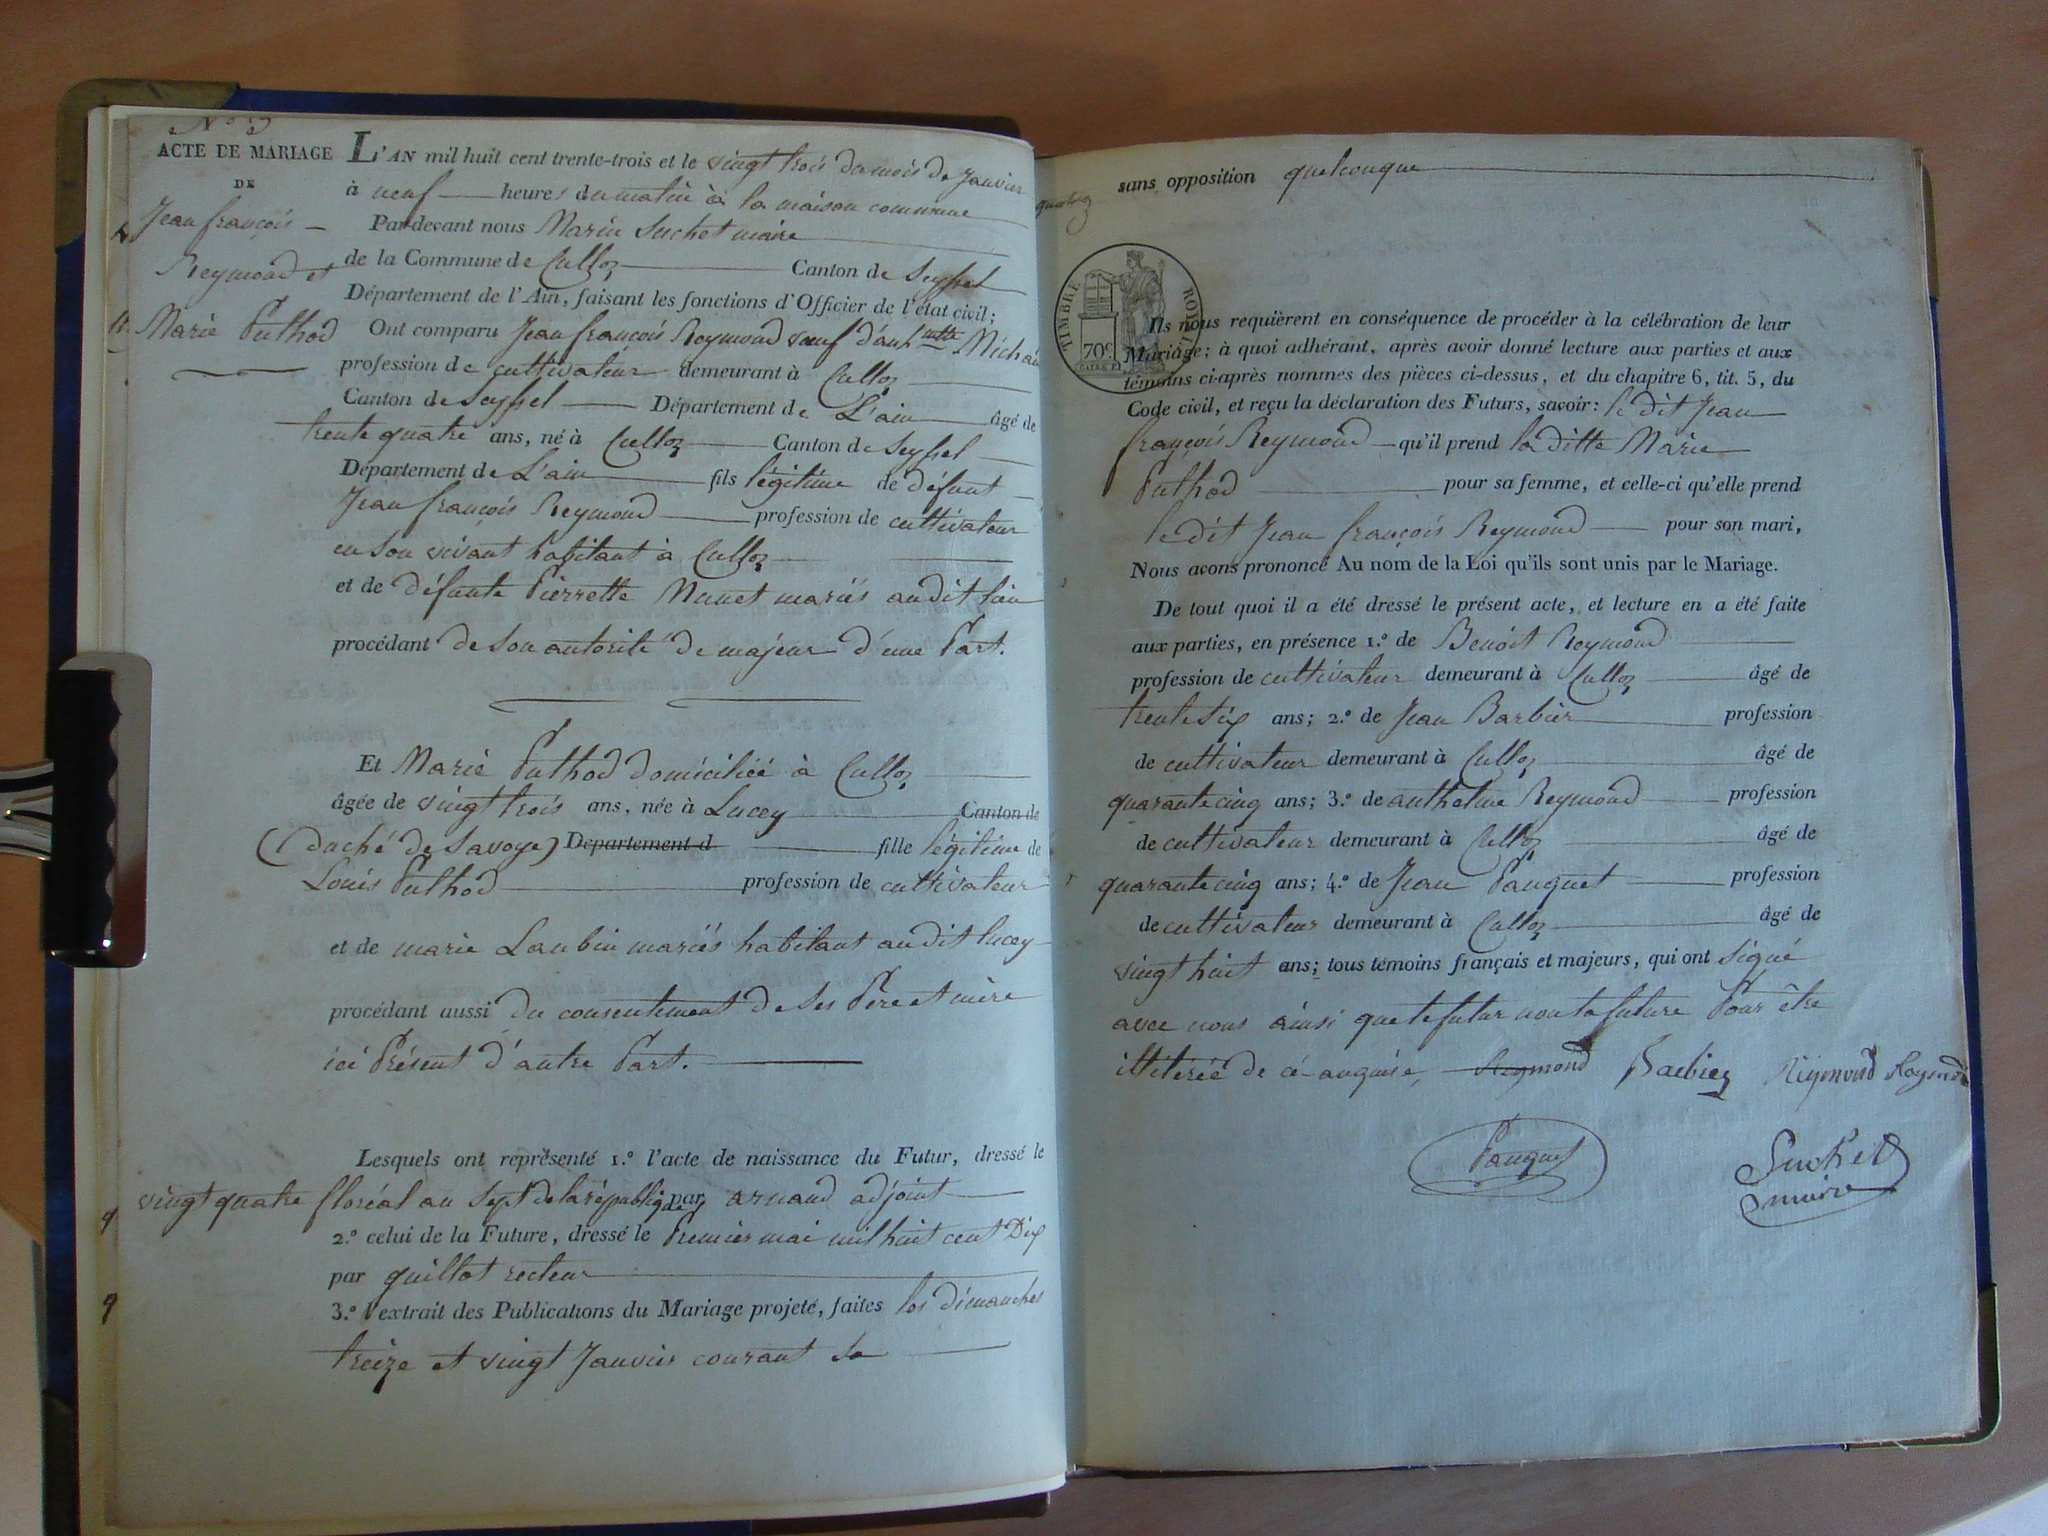 ACTE DE MARIAGE
DE
Jean françois
Reymond et
Marie Puthod
L'AN mil huit cent trente-trois et le vingt trois du mois de Janvier
à neuf heures du matin à la maison commune
Par-devant nous Marin Suchet maire
de la Commune de Culloz Canton de Seyssel
Département de l'Ain, faisant les fonctions d'Officier de l'état civil;
Ont comparu Jean françois Reymond veuf d'anh.lette Michau
profession de cultivateur demeurant à Culloz
Canton de Seyssel Département de L'ain âgé de
trente quatre ans, né à Culloz Canton de Seyssel
Département de L'ain fils légitime de défunt
Jean françois Reymond profession de cultivateur
en son vivant habitant à Culloz
et de défunte Pierrette Manet mariés audit lieu
procédant de son autorité de majeur d'une Part.
Et Marie Puthod domiciliée à Culloz
âgée de vingt trois ans, née à Lucey Canton de
(duché de Savoye) Département d fille légitime de
Louis Puthod profession de cultivateur
et de marie Laubin mariés habitant au dit lucey
procédant aussi du consentement de ses Père et mère
ici Présent d'autre Part.
Lesquels ont représenté 1.º l'acte de naissance du Futur, dressé le
vingt quatre floréal an sept de la république par arnaud adjoint
2.º celui de la Future, dressé le Premier mai mil huit cent Dix
par guillot recteur
3.º l'extrait des Publications du Mariage projeté, faites les dimanches
treize et vingt Janvier courant
sans opposition quelconque
TIMBRE ROYAL
70c
Ils nous requièrent en conséquence de procéder à la célébration de leur
Mariage; à quoi adhérant, après avoir donné lecture aux parties et aux
témoins ci-après nommés des pièces ci-dessus, et du chapitre 6, tit. 5, du
Code civil, et reçu la déclaration des Futurs, savoir: le dit Jean
françois Reymond qu'il prend la ditte Marie
Puthod pour sa femme, et celle-ci qu'elle prend
le dit Jean françois Reymond pour son mari,
Nous avons prononcé Au nom de la Loi qu'ils sont unis par le Mariage.
De tout quoi il a été dressé le présent acte, et lecture en a été faite
aux parties, en présence 1.º de Benoit Reymond
profession de cultivateur demeurant à Culloz âgé de
trente six ans; 2.º de Jean Barbier profession
de cultivateur demeurant à Culloz âgé de
quarante cinq ans; 3.º de anthelme Reymond profession
de cultivateur demeurant à Culloz âgé de
quarante cinq ans; 4.º de Jean Pauget profession
de cultivateur demeurant à Culloz âgé de
vingt huit ans; tous témoins français et majeurs, qui ont signé
avec nous ainsi que le futur non la future Pour être
illitérée de ce enquise, Reymond Barbier Reymond Raymond
Pauget
Suchet
maire